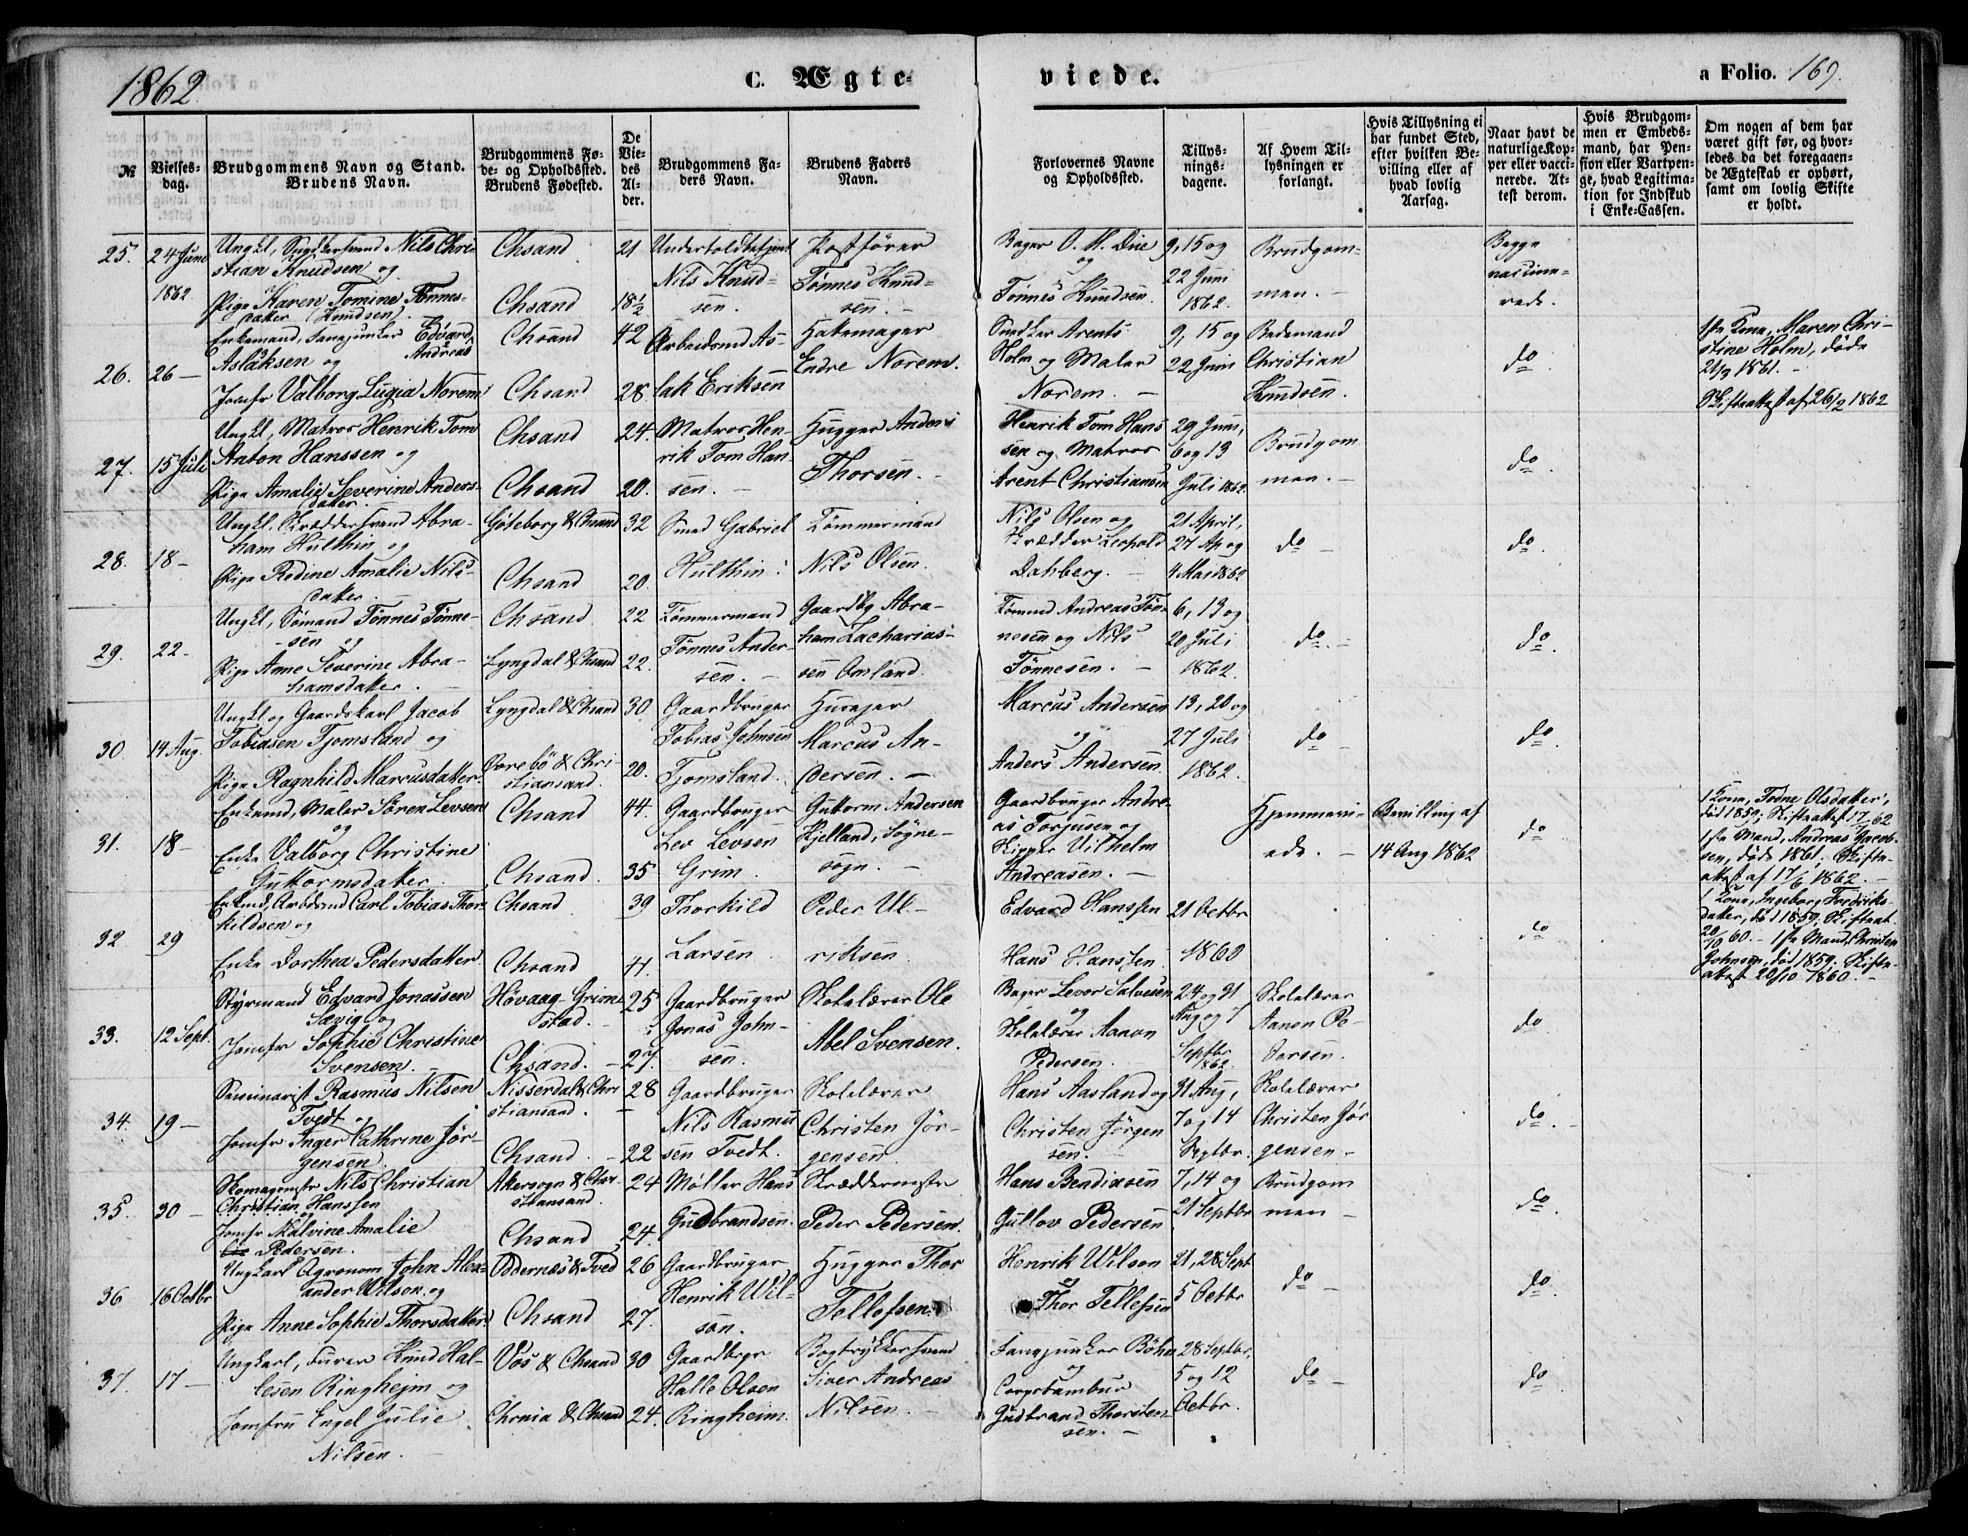 1862
C. Ægte-
viede.
a Folio. 169.
№
Vielses-
dag.
Brudgommens Navn og Stand.
Brudens Navn.
Brudgommens Fø-
de- og Opholdssted.
Brudens Fødested.
De
Vie-
des
Al-
der.
Brudgommens Fa-
ders Navn.
Brudens Faders
Navn.
Forlovernes Navne
og Opholdssted.
Tillys-
nings-
dagene.
Af Hvem Til-
lysningen er
forlangt.
Hvis Tillysning ei
har fundet Sted,
efter hvilken Be-
villing eller af
hvad lovlig
Aarsag.
Naar havt de
naturlige Kop-
per eller vacci-
nerede. At-
test derom.
Hvis Brudgom-
men er Embeds-
mand, har Pen-
sion eller Vartpen-
ge, hvad Legitima-
tion for Indskud
i Enke-Cassen.
Om nogen af dem har
været gift før, og hvor-
ledes da det foregaaen-
de Ægteskab er ophørt,
samt om lovlig Skifte
er holdt.
25.
24 Juni
1862
Ungkl, Snedkersvend Nils Chri-
stian Knudsen og
Pige Karen Tomine Tønnes-
datter (Knudsen).
Chsand
Chsand
21
18½
Undertoldbetjent
Nils Knud-
sen.
Postfører
Tønnes Knud-
sen.
Bager O. M. Due
og
Tønnes Knudsen.
9, 15 og
22 Juni
1862.
Brudgom-
men.
Begge
vaccine-
rede.
26.
26
Enkemand, Fanejunker Edvard
Aslaksen og Andreas
Jomfr Valborg Lugia Norem
Chsand
Chsand
42
28
Arbeidsmd As-
lak Eriksen
Hattemager
Endre Norem.
Snedker Arents
Holm og Maler
Norem.
9, 15 og
22 Juni
Bedemand
Christian
Knudsen.
do
1ste Kone, Maren Chri-
stine Holm, døde
21/3 1861.
Skifteattest af 26/2 1862
27.
15 Juli
Ungkl, Matros Henrik Tom
Anton Hanssen og
Pige Amalie Severine Anders-
datter.
Chsand
Chsand
24.
20.
Matros Hen-
rik Tom Han-
sen.
Hugger Anders
Thorsen.
Henrik Tom Hans
sen og Matros
Arent Christiansen
29 Juni,
6 og 13
Juli 1862.
Brudgom
men.
do
28.
18
Ungkl, Skræddersvend Abra-
ham Hulthin og
Pige Rodine Amalie Nils-
datter.
Göteborg & Chsand
Chsand
32
20.
Smed Gabriel
Hulthin.
Tømmermand
Nils Olsen.
Nils Olsen og
Skrædder Leopold
Dahberg.
21 April,
27 Ap og
4 Mai 1862
do
do
29.
22
Ungkl, Sømand Tønnes Tønne-
sen og
Pige Anne Severine Abra-
hamsdatter.
Chsand
Lyngdal & Chsand
22
22.
Tømmermand
Tønnes Ander-
sen.
Gaardbg Abra-
ham Zacharias-
sen Omland.
Tømmd Andreas Tøn-
nesen og Nils
Tønnesen.
6, 13 og
20 Juli
1862.
do
do
30
14 Aug.
Ungkl og Gaardskarl Jacob
Tobiasen Tjomsland og
Pige Ragnhild Marcusdatter.
Lyngdal & Chsand
Torebö & Chri-
stiansand.
30
20.
Gaardbruger
Tobias Johnsen
Tjomsland.
Huseier
Marcus An-
dersen.
Marcus Andersen
og
Anders Andersen.
13, 20 og
27 Juli
1862.
do
do
31.
18
Enkemd, Maler Søren Levsen
og
Enke Valborg Christine
Guttormsdatter.
Chsand
Chsand.
44.
35
Gaardbruger
Lev Levsen
Grim.
Guttorm Andersen
Kjelland, Søgne-
sogn.
Gaardbruger Andre-
as Torjusen og
Skipper Vilhelm
Andreasen.
Hjemmevi-
ede.
Bevilling af
14 Aug 1862
do
1 Kone, Tone Olsdatter,
død 1859; Skifteattest 17/62
1ste Mand, Andreas Jacob-
sen, døde 1861. Skifte-
attest af 17/6 1862.
32
29
Enkmd, Arbdsmd Carl Tobias Thor-
kildsen og
Enke Dorthea Pedersdatter.
Chsand
Chsand
39
41.
Thorkild
Larsen
Peder Ul-
riksen.
Edvard Hanssen
Hans Hanssen.
21 Octbr
1860
do
1 Kone, Ingeborg Fredriks-
datter, død 1859. Skifteat
20/10 60. 1ste Mand, Christen
Johnsen, død 1859. Skifte-
attest 20/10 1860.
33.
12 Sept.
Styrmand Edvard Jonassen
Sævig og
Jomfr Sophie Christine
Svensen.
Høvaag Grim-
stad.
Chsand.
25
27.
Gaardbruger
Jonas John-
sen.
Skolelærer Ole
Abel Svensen.
Bager Levor Salvesen
og
Skolelærer Aanon
Pedersen.
24 og 31
Aug og 7
Septbr
1862.
Skolelærer
Aanon Pe-
dersen.
do
34
19
Seminarist Rasmus Nilsen
Tvedt og
Jomfr Inger Cathrine Jør-
gensen.
Nisserdal & Chri
stiansand.
Chsand.
28
22
Gaardbruger
Nils Rasmu
sen Tvedt.
Skolelærer
Christen Jør-
gensen.
Hans Aasland og
Christen Jørgen
sen.
31 Aug,
7 og 14
Septbr.
Skolelærer
Christen Jør
gensen.
do.
35.
30
Skomagermstr Nils Christian
Christian Hanssen
og
Jomfr Malvine Amalie
Pedersen.
Akersogn & Chri-
stiansand
Chsand
24
24.
Møller Hans
Gudbrandsen.
Skræddermstr
Peder Pedersen.
Hans Bendixsen
Gullov Pedersen
7, 14 og
21 Septbr
Brudgom
men
do
36
16 Octbr
Ungkarl Agronom John Alex-
ander Wilson og
Pige Anne Sophie Thorsdatter.
Oddernæs & Tved
Chsand
26
27.
Gaardbruger
Henrik Wil-
son.
Hugger Thor
Tellefsen.
Henrik Wilson
og
Thor Tellefsen
21, 28 Sept
5 Octbr
do
do
37.
17
Ungkarl, Furer Knud Hal-
lesen Ringheim og
Jomfru Engel Julie
Nilsen.
Vos & Chsand
Chrnia & Chsand
30
24.
Gaardbrgr
Halle Olsen
Ringheim.
Bogtrykkersvend
Siver Andreas
Nilsen.
Fanejunker Bøhn
og
Corpstambur
Gudbrand Thorsten-
sen.
28 Septbr,
5 og 12
Octbr.
do
do